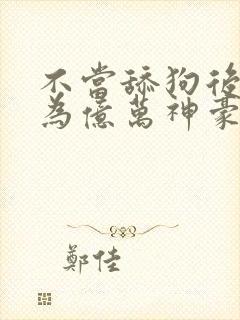 不當舔狗後
為億萬神豪
鄭佳